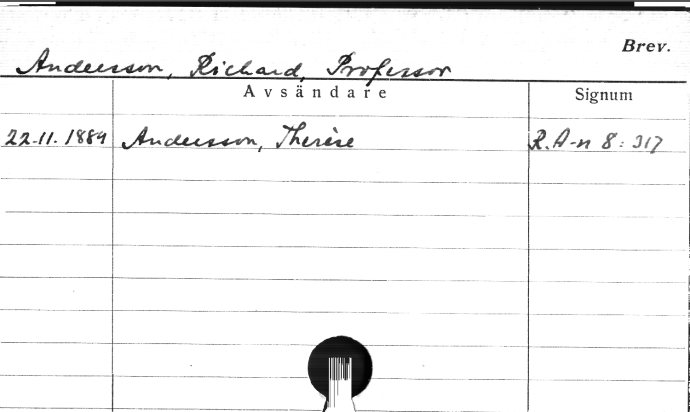 Brev.
Andersson, Richard, Professor
Avsändare Signum
22.11.1884 Andersson, Thérèse R.A-n 8:317